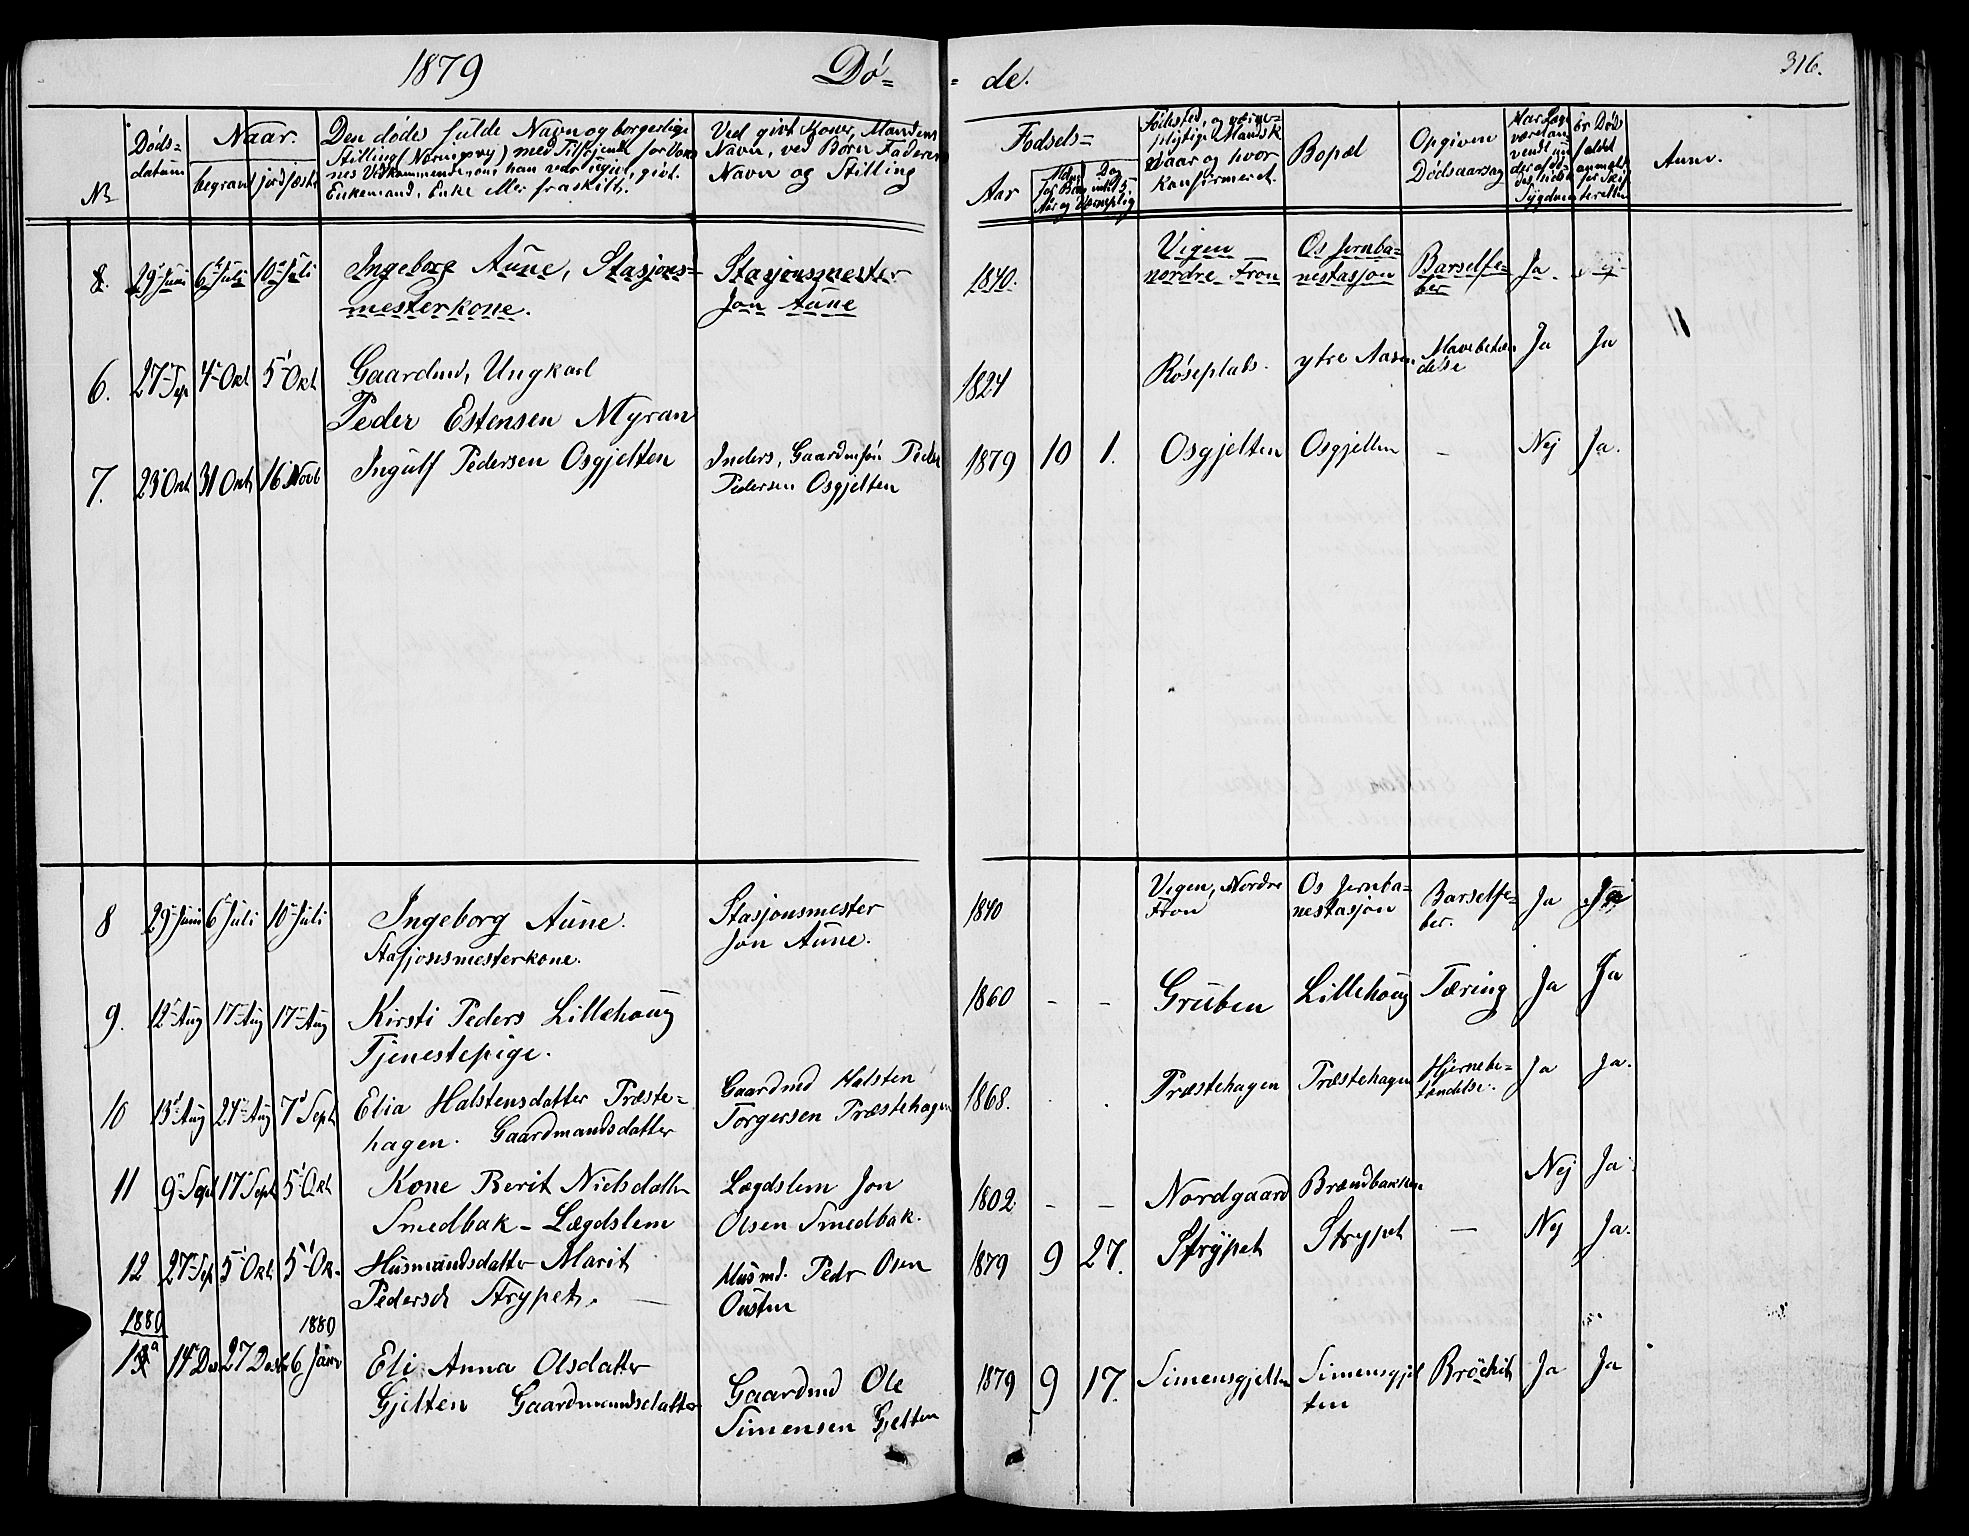 1879 Dø= = de. 316.
Nr Dødsdatum Naar. begravet jordfæstet Den dødes fulde Navn og borgerlige Stilling (Næringsvej) med Tilføjende for Voxnes Vedkommende, om han var ugivt, givt. Enkemand, Enke eller fraskilt. Ved givt Koner, Mandens Navn, ved Børn Faderens Navn og Stilling Fødsels= Aar Fødested, og Mandsk Aar og hvor Konfirmeret. Bopæl Opgiven Dødsaarsag Anm.
8. 29 Juni 6 Juli 10 Juli Ingeborg Aune, Stasjons= Stasjonsmester 1840. Vigen Os Jernba= Barselfe= Ja.
mesterkone. Jon Aune nordre Fron nestasjon ber
6. 27 Sep 4 Okt 5 Okt Gaardmd, Ungkarl 1824 Røseplads. ytre Aasen Mavebetæn Ja Ja
Peder Estensen Myran delse
7. 23 Okt 31 Okt 16 Novb Ingulf Pedersen Osgjelten Inders, Gaardmsøn Peder 1879 10 1. Osgjelten Osgjelten - Nej Ja.
Pedersen Osgjelten
8 29 Juni 6 Juli 10 Juli Ingeborg Aune. Stasjonsmester 1840 Vigen, Nordre Os Jernba= Barselfe= Ja
Stasjonsmesterkone. Jon Aune. Fron nestasjon ber.
9. 12 Aug 17 Aug 17 Aug Kirsti Peders Lillehoug 1860 - - Gruben Lillehoug Tæring Ja Ja
Tjenestepige.
10 13 Aug 24 Aug 7 Sept Elia Halstensdatter Præste= Gaardmd Halsten 1868. . . Præstehagen Præstehagen Hjernebe= Ja Ja.
hagen. Gaardmandsdatter Torgersen Præstehagen tændelse.
11 9 Sept 17 Sept 5 Okt Kone Berit Nielsdatter Lægdslem Jon 1802. - - Nordgaard Brændbakken Nej Ja
Smedbak - Lægdslem Olsen Smedbak.
12 27 Sep 5 Okt 5 Ok. Husmandsdatter Marit Husmd. Pedr Osen 1879 9 27. Strypet Strypet - Nej Ja.
Pedersd Strypet. -
1880 1880
13a 14 Des 27 Desb 6 Janv Eli Anna Olsdatter Gaardmd Ole 1879 9 17. Simensgjelten Simensgjel Ja Ja
Gjelten Gaardmandsdatter Simensen Gjelten ten